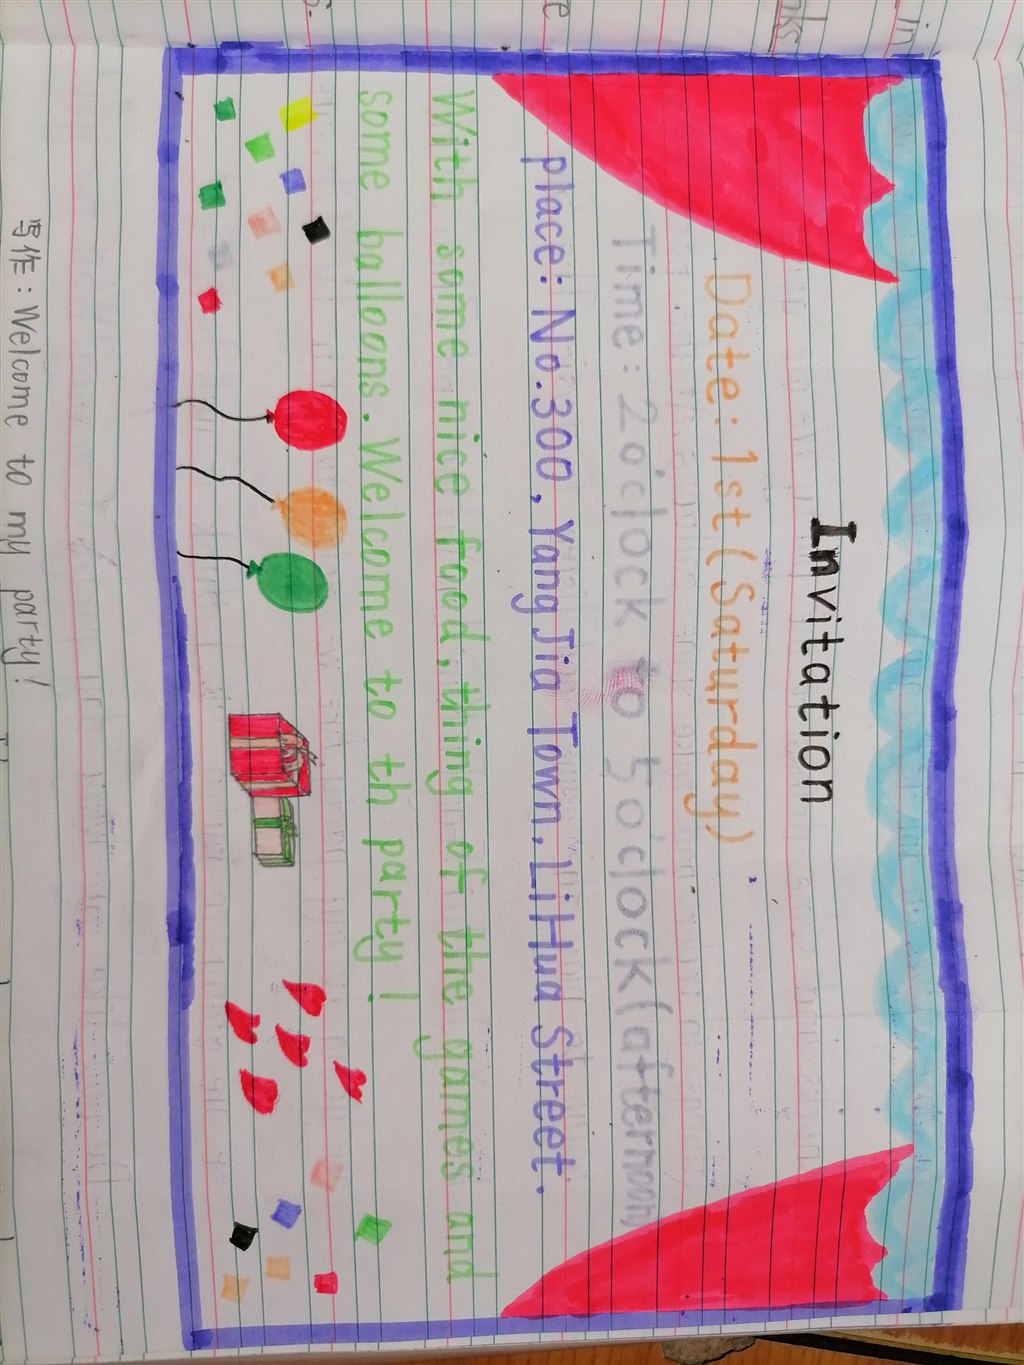 Invitation
Date: 1st (Saturday)
Time: 2o'clock to 5o'clock(afternoon)
place: No.300, Yang Jia Town, LiHua Street.
With some nice food, thing of the games and
some balloons. Welcome to th party!
写作: Welcome to my party!